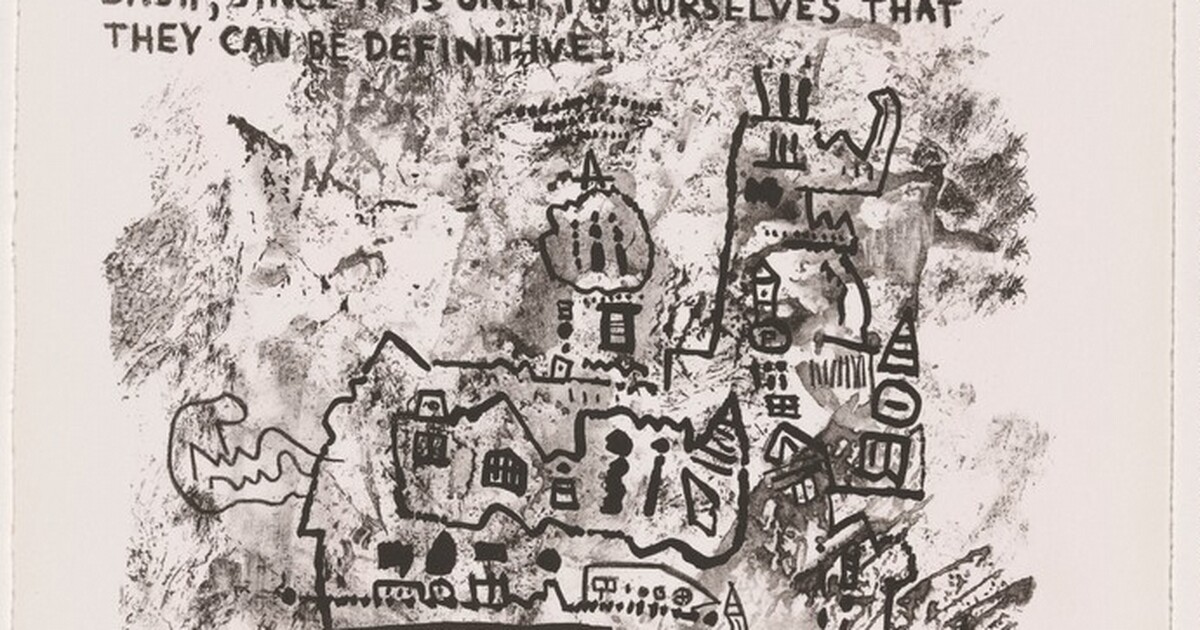 DASH, SINCE IT IS ONLY TO OURSELVES THAT
THEY CAN BE DEFINITIVE.